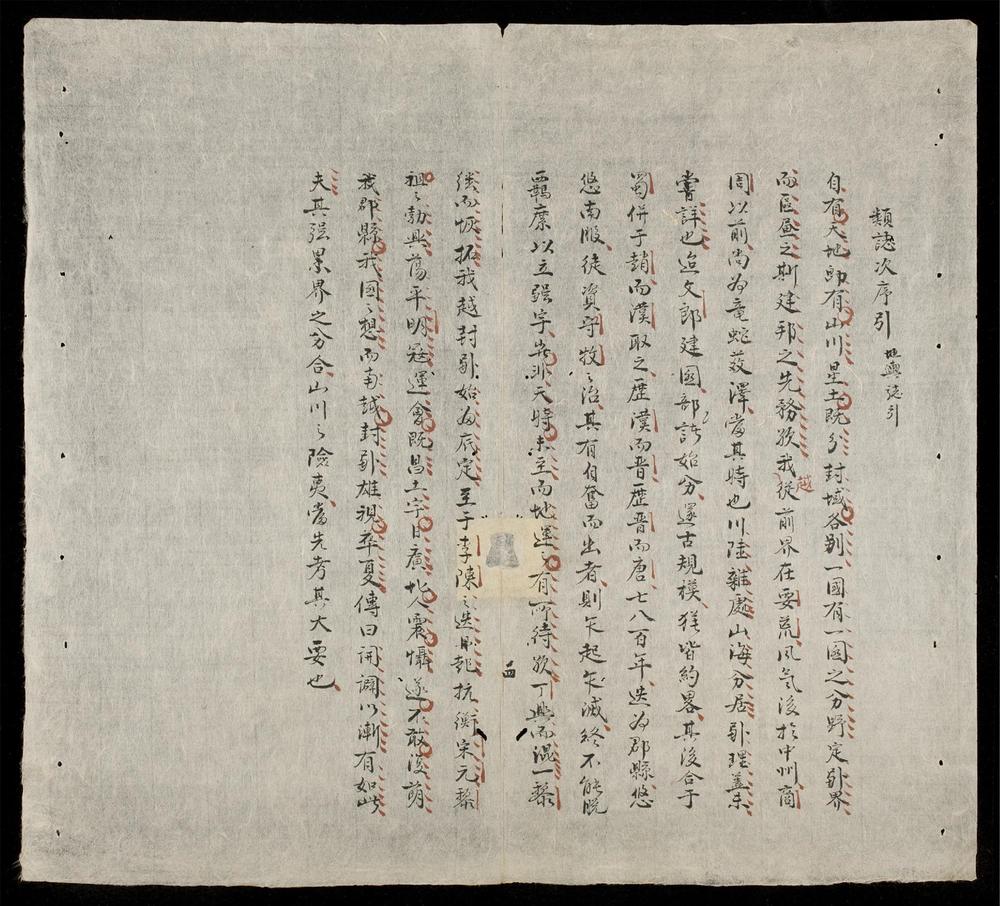 類誌次序引 輿誌引
自有天地即有山川星土既分封域各別一國有一國之分野定卧界
而區画之斯建邦之先務欤我越從前界在要荒風氣後於中州商
周以前尚為竜蛇薮澤當其時也川陸雜處山海分居卧理盖未
嘗詳也迨文郎建國部許始分邃古規模猶皆約畧其後合于
蜀併于趙而漢取之歷漢而晋歷晋而唐七八百年迭為郡縣悠
悠南服徒資守牧之治其有自奮而出者則乍起乍滅終不能脱
羈縻以立强宇豈非天時未至而地運之有所待欤丁興而混一黎
継而恢拓我越封卧始為底定至于李陳之迭興抗衡宋元黎
祖之勃興蕩平明冦運會既昌土宇日廣北人震懾遂不敢復萌
我郡縣我國之想而南越封卧雄視華夏傳曰開闢以漸有如此
夫其强累界之分合山川之險夷當先考其大要也
四